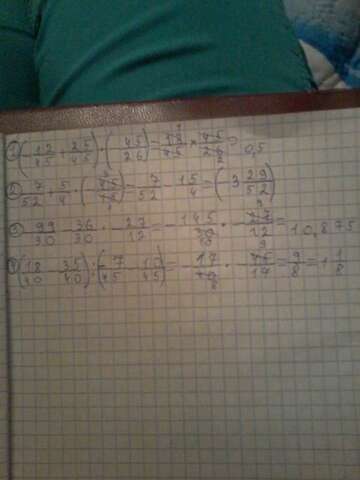 (-12/45 + 25/45) · (-45/26) = 13/45 × 45/26 = 0,5
7/52 + 5/4 · (-45/15) = 7/52 - 15/4 = (-3 29/52)
3) -99/30 - 36/30 · -27/12 = -145/30 · -27/12 = 10,875
4) (18/40 - 35/40) : (-7/45 - 10/45) = -17/40 · -45/17 = 9/8 = 1 1/8